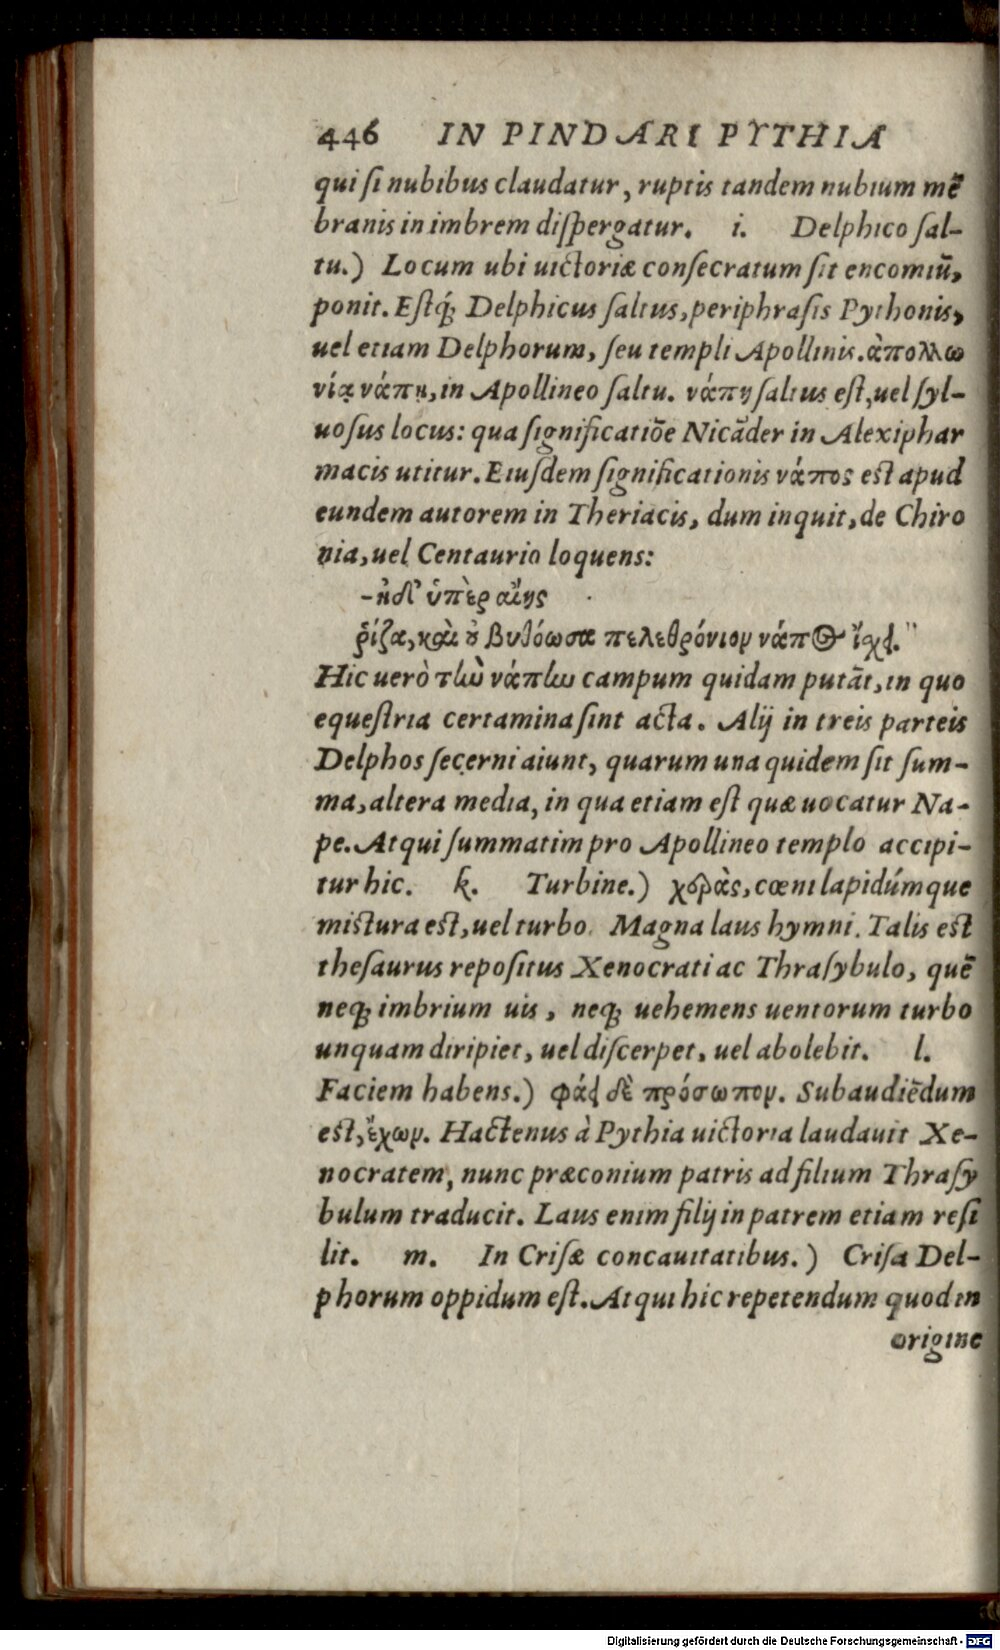 446 IN PINDARI PYTHIA
qui ſi nubibus claudatur, ruptis tandem nubium mē
branis in imbrem diſpergatur. i. Delphico ſal-
tu.) Locum ubi uictoriæ conſecratum ſit encomiū,
ponit. Eſtq́ꝫ Delphicus ſaltus, periphraſis Pythonis,
uel etiam Delphorum, ſeu templi Apollinis. ἀπολλω
νίᾳ νάπῃ, in Apollineo ſaltu. νάπη ſaltus eſt, uel ſyl-
uoſus locus: qua ſignificatiōe Nicāder in Alexiphar
macis utitur. Eiuſdem ſignificationis νάπος eſt apud
eundem autorem in Theriacis, dum inquit, de Chiro
nia, uel Centaurio loquens:
-ἠδ' ὑπὲρ αἴης
ῥίζα, καὶ ὀ βυθόωσα πελεθρόνιον νάπος ἴχει."
Hic uerò τὴν νάπην campum quidam putāt, in quo
equeſtria certamina ſint acta. Alij in treis parteis
Delphos ſecerni aiunt, quarum una quidem ſit ſum-
ma, altera media, in qua etiam eſt quæ uocatur Na-
pe. Atqui ſummatim pro Apollineo templo accipi-
tur hic. k. Turbine.) χεράς, cœni lapidúmque
miſtura eſt, uel turbo. Magna laus hymni. Talis eſt
theſaurus repoſitus Xenocrati ac Thraſybulo, quē
neqꝫ imbrium uis, neqꝫ uehemens uentorum turbo
unquam diripiet, uel diſcerpet, uel abolebit. l.
Faciem habens.) φάει δὲ πρόσωπον. Subaudiēdum
eſt, ἔχων. Hactenus à Pythia uictoria laudauit Xe-
nocratem, nunc præconium patris ad filium Thraſy
bulum traducit. Laus enim filij in patrem etiam reſi
lit. m. In Criſæ concauitatibus.) Criſa Del-
phorum oppidum eſt. Atqui hic repetendum quod in
origine
Digitalisierung gefördert durch die Deutsche Forschungsgemeinschaft - DFG